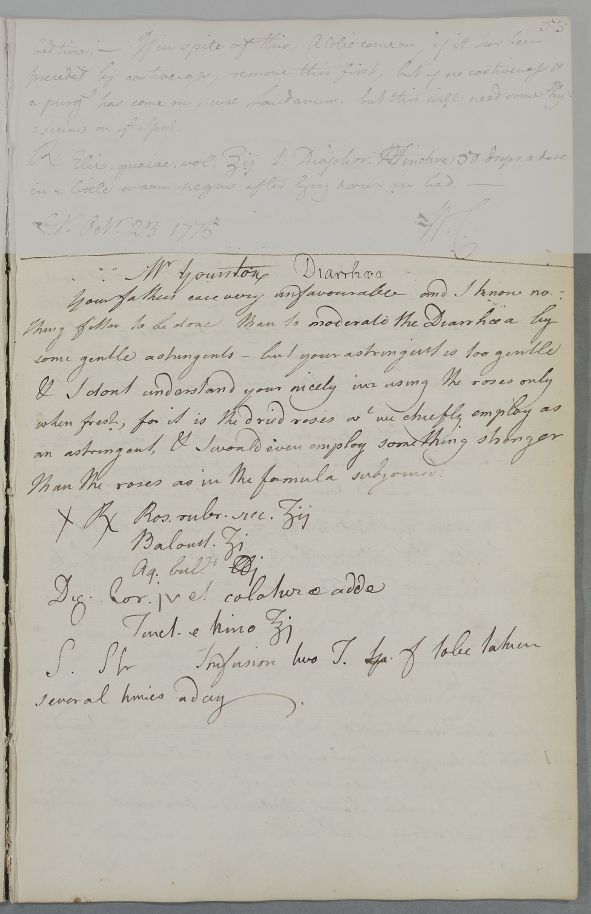 53
bedtime; — If in spite of this, a Colic come on, if it has been
preceded by costiveness, remove this first, but if no costiveness &
a purg^g has come on, use Laudanum. but this will need some Phy-
-sician on y^e spot.
℞ Elix. guaiac. vol. ʒij S. Diaphor. Tincture 50 drops a dose
in a little warm negus after lying down in bed —
Ed^r. Oct^r. 23 1775
W. C.
Mr Youston Diarrhœa
Your fathers case very unfavourable and I know no-
thing fitter to be done than to moderate the Diarrhœa by
some gentle astringents – but your astringent is too gentle
& I dont understand your nicety in using the roses only
when fresh, for it is the dried roses w^c we chiefly employ as
an astringent, & I would even employ something stronger
than the roses as in the formula subjoined.
X ℞ Ros. rubr. sicc. ʒij
Balaust. ʒj
Aq. bull^t ℔j
Dig. hor. iv et colaturæ adde
Tinct. e kino ʒj
S. Str Infusion two T. sp. f to be taken
several times a day